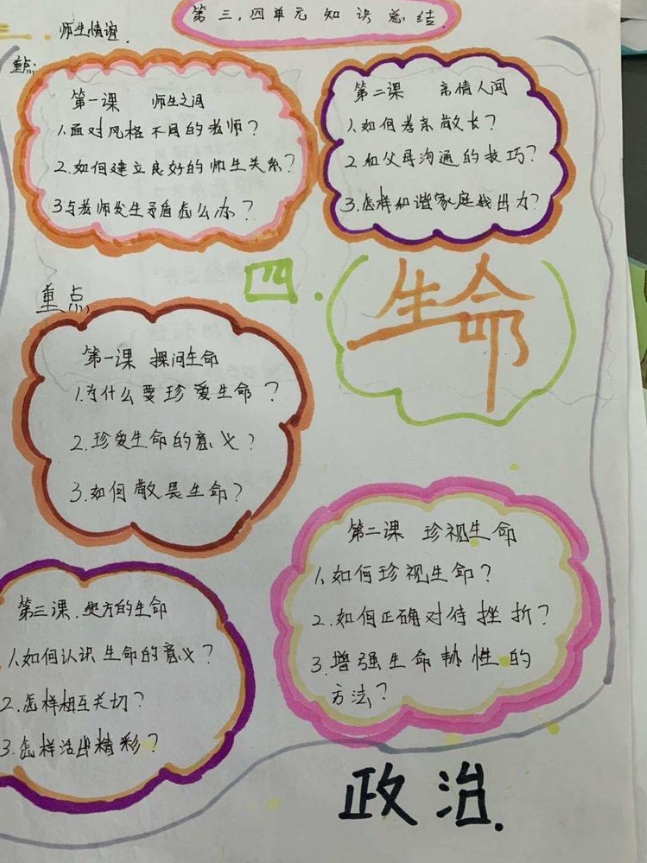 第三，四单元知识总结
师生情谊
重点：
第一课 师生之间
1.面对风格不同的教师？
2.如何建立良好的师生关系？
3与教师发生矛盾怎么办？
第二课 亲情人间
1.如何孝亲敬长？
2和父母沟通的技巧？
3.怎样和谐家庭我出力？
四.
生命
重点
第一课 探问生命
1.为什么要珍爱生命？
2.珍爱生命的意义？
3.如何敬畏生命？
第二课 珍视生命
1.如何珍视生命？
2.如何正确对待挫折？
3.增强生命韧性的
方法？
第三课.绽方的生命
1.如何认识生命的意义？
2.怎样相互关切？
3.怎样活出精彩？
政治.